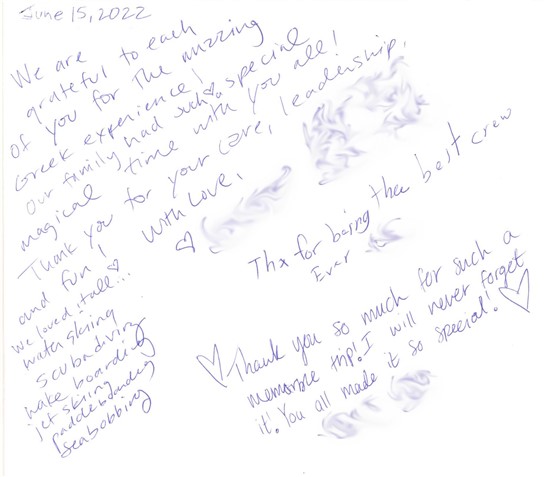 June 15, 2022
We are
grateful to each
of you for the amazing
Greek experience!
Our family had such a special
magical time with you all!
Thank you for your care, leadership,
and fun!
With Love,
We loved it all...
water skiing
scuba diving
wake boarding
jet skiing
paddleboarding
seabobbing
Thx for being the best crew
Ever
Thank you so much for such a
memorable trip! I will never forget
it! You all made it so special!